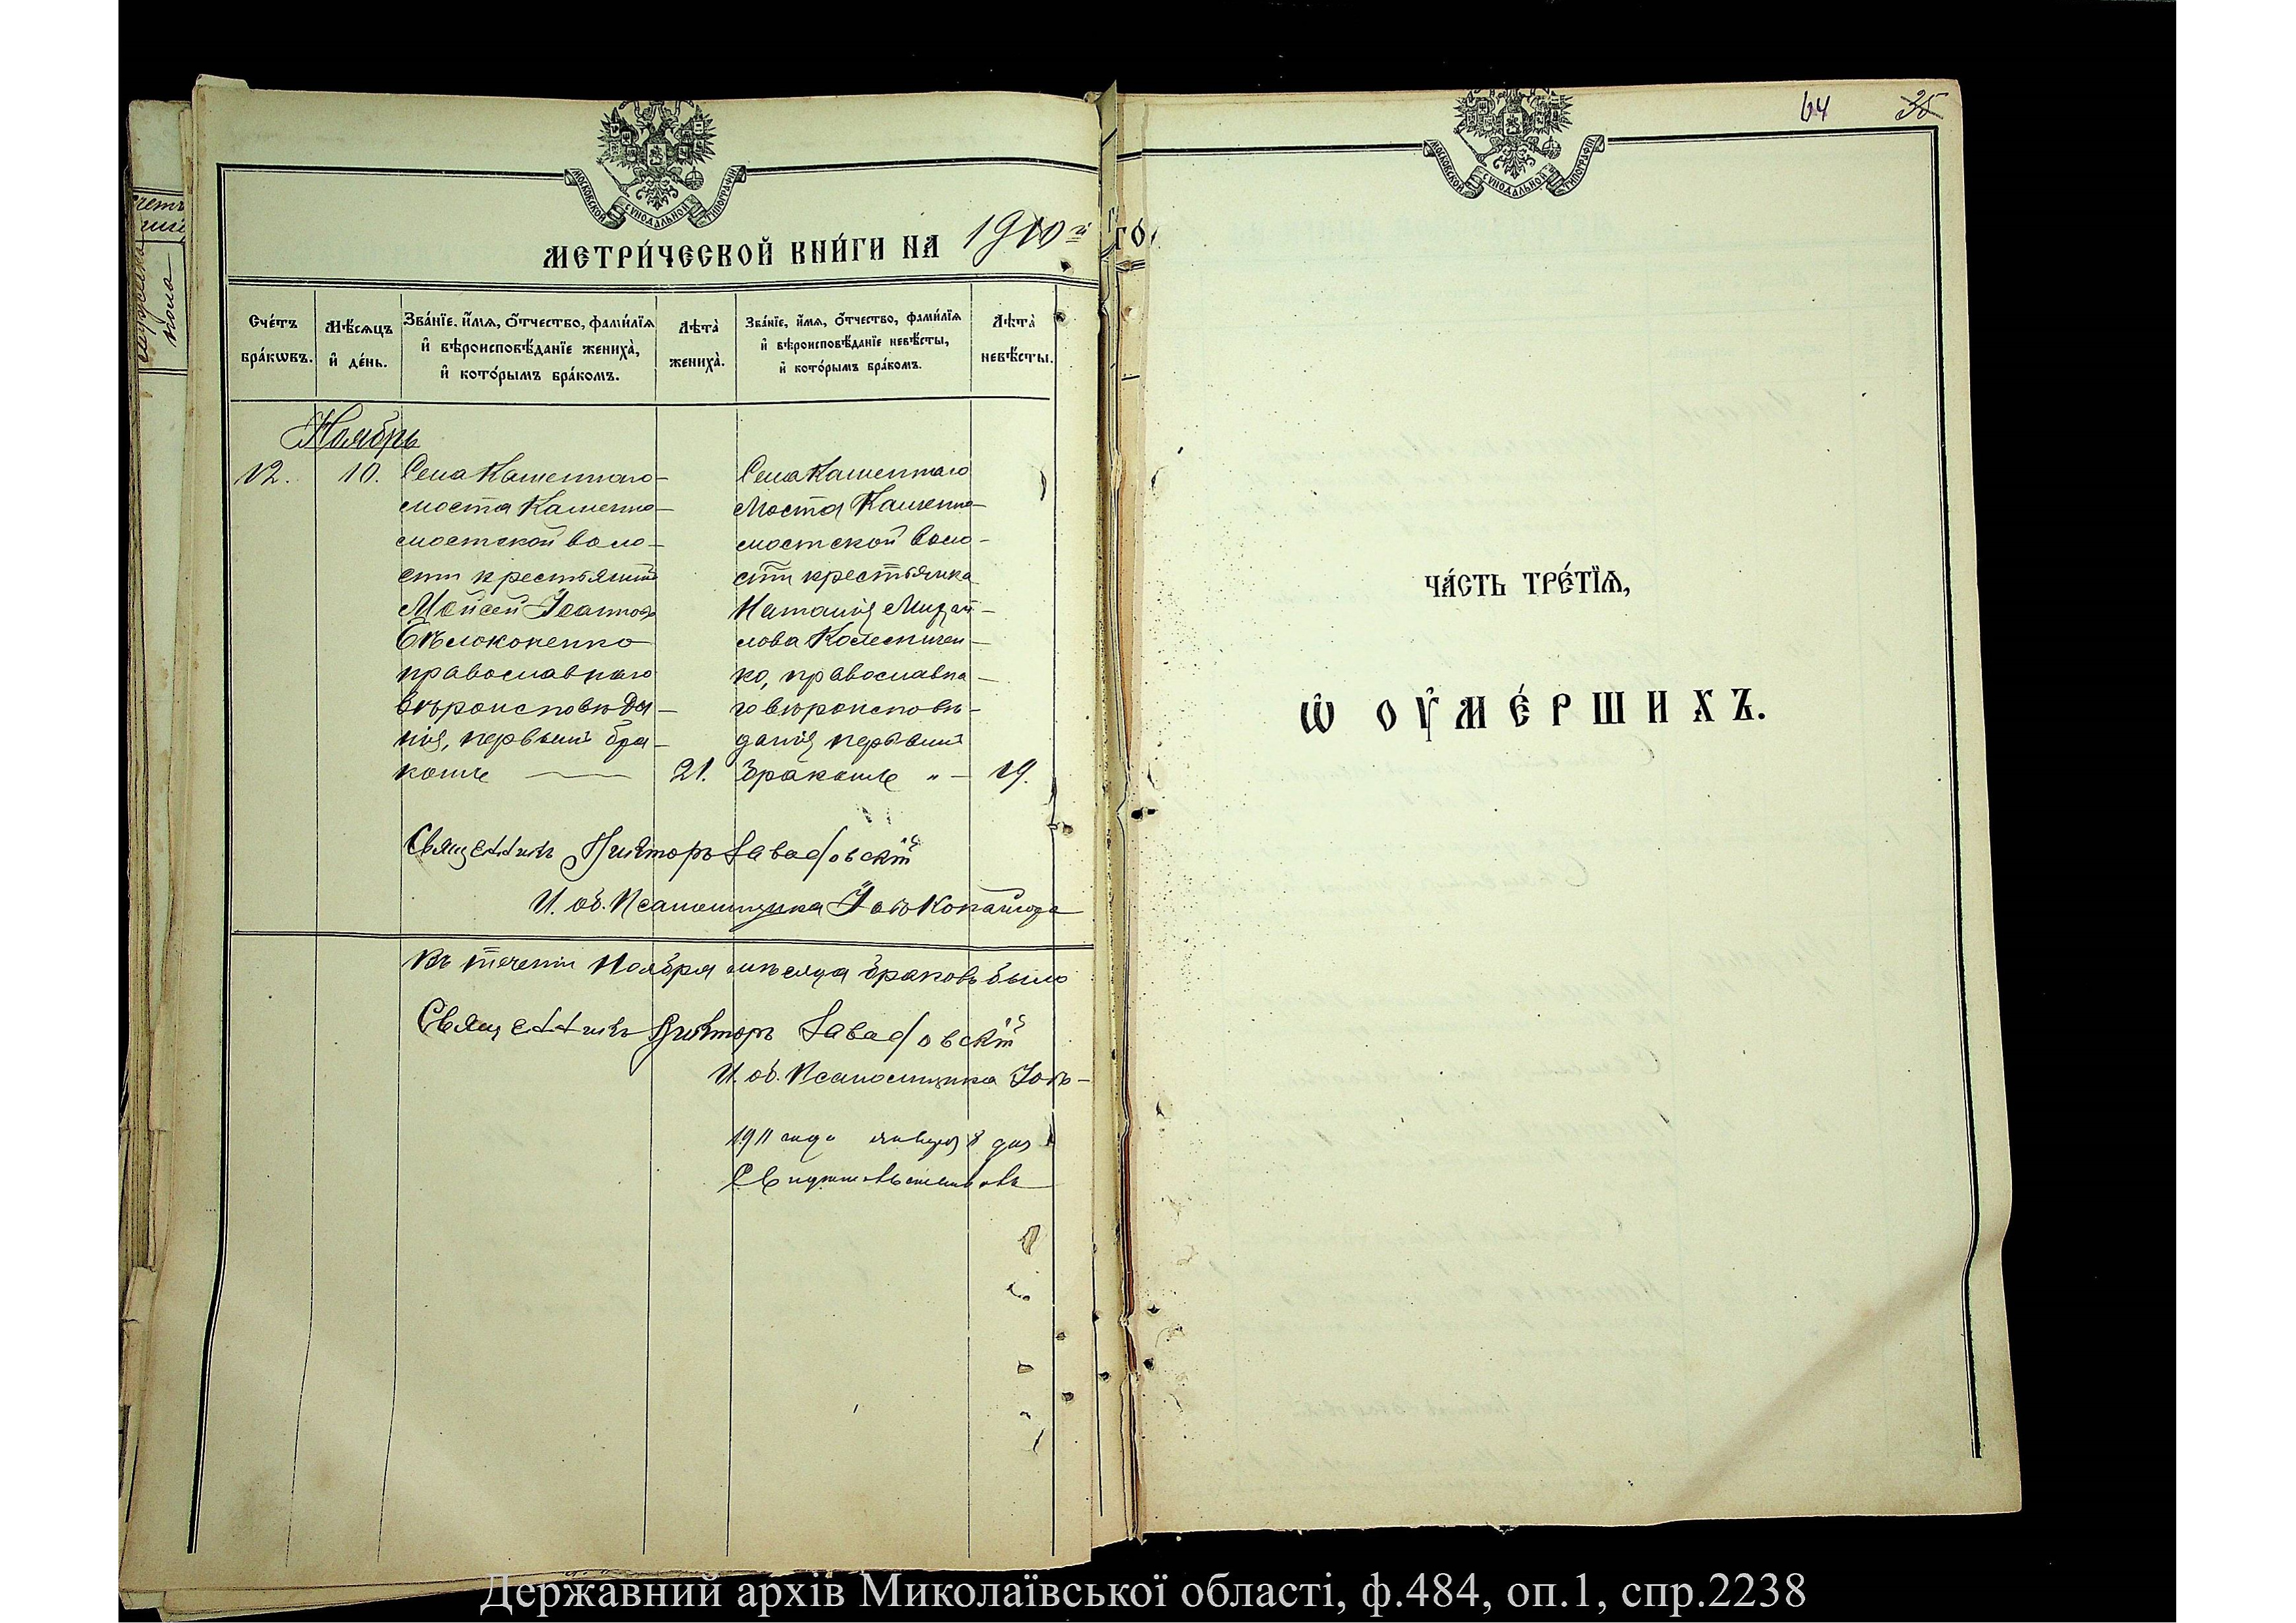 четъ
мужеска
пола
МОСКОВСКОЙ СѴНОДАЛЬНОЙ ТИПОГРАФІИ
МЕТРИ́ЧЕСКОЙ КНИ́ГИ НА 1910й
Сче́тъ бра́кωвъ.
Мѣ́сѧцъ и҆ де́нь.
Зва́нїе, и҆́мѧ, ѻ҆́тчество, фами́лїѧ и҆ вѣроисповѣ́данїе жениха̀, и҆ кото́рымъ бра́комъ.
Лѣта̀ жениха̀.
Зва́нїе, и҆́мѧ, ѻ҆́тчество, фами́лїѧ и҆ вѣроисповѣ́данїе невѣ́сты, и҆ кото́рымъ бра́комъ.
Лѣта̀ невѣ́сты.
Ноябрь
12. 10.
Села Каменнаго
моста Каменно-
мостской воло-
сти крестьянинъ
Мойсей Іоанновъ
Бѣлоконенко
православнаго
вѣроисповѣда-
нія, первымъ бра-
комъ 21.
Села Каменнаго
Моста Каменно-
мостской воло-
сти крестьянка
Наталія Михай-
лова Колесничен-
ко, православна-
го вѣроисповѣ-
данія первымъ
бракомъ 19.
Священникъ Викторъ Завадовскій
И. об. Псаломщика Іовъ
Въ теченіи Ноября мѣсяца браковъ было
Священникъ Викторъ Завадовскій
И. об. Псаломщика Іовъ
1911 года января 8 дня
Го́
МОСКОВСКОЙ СѴНОДАЛЬНОЙ ТИПОГРАФІИ
64 35
ЧА́СТЬ ТРЕ́ТЇѦ,
Ѡ҆ ОУ҆МЕ́РШИХЪ.
Державний архів Миколаївської області, ф.484, оп.1, спр.2238